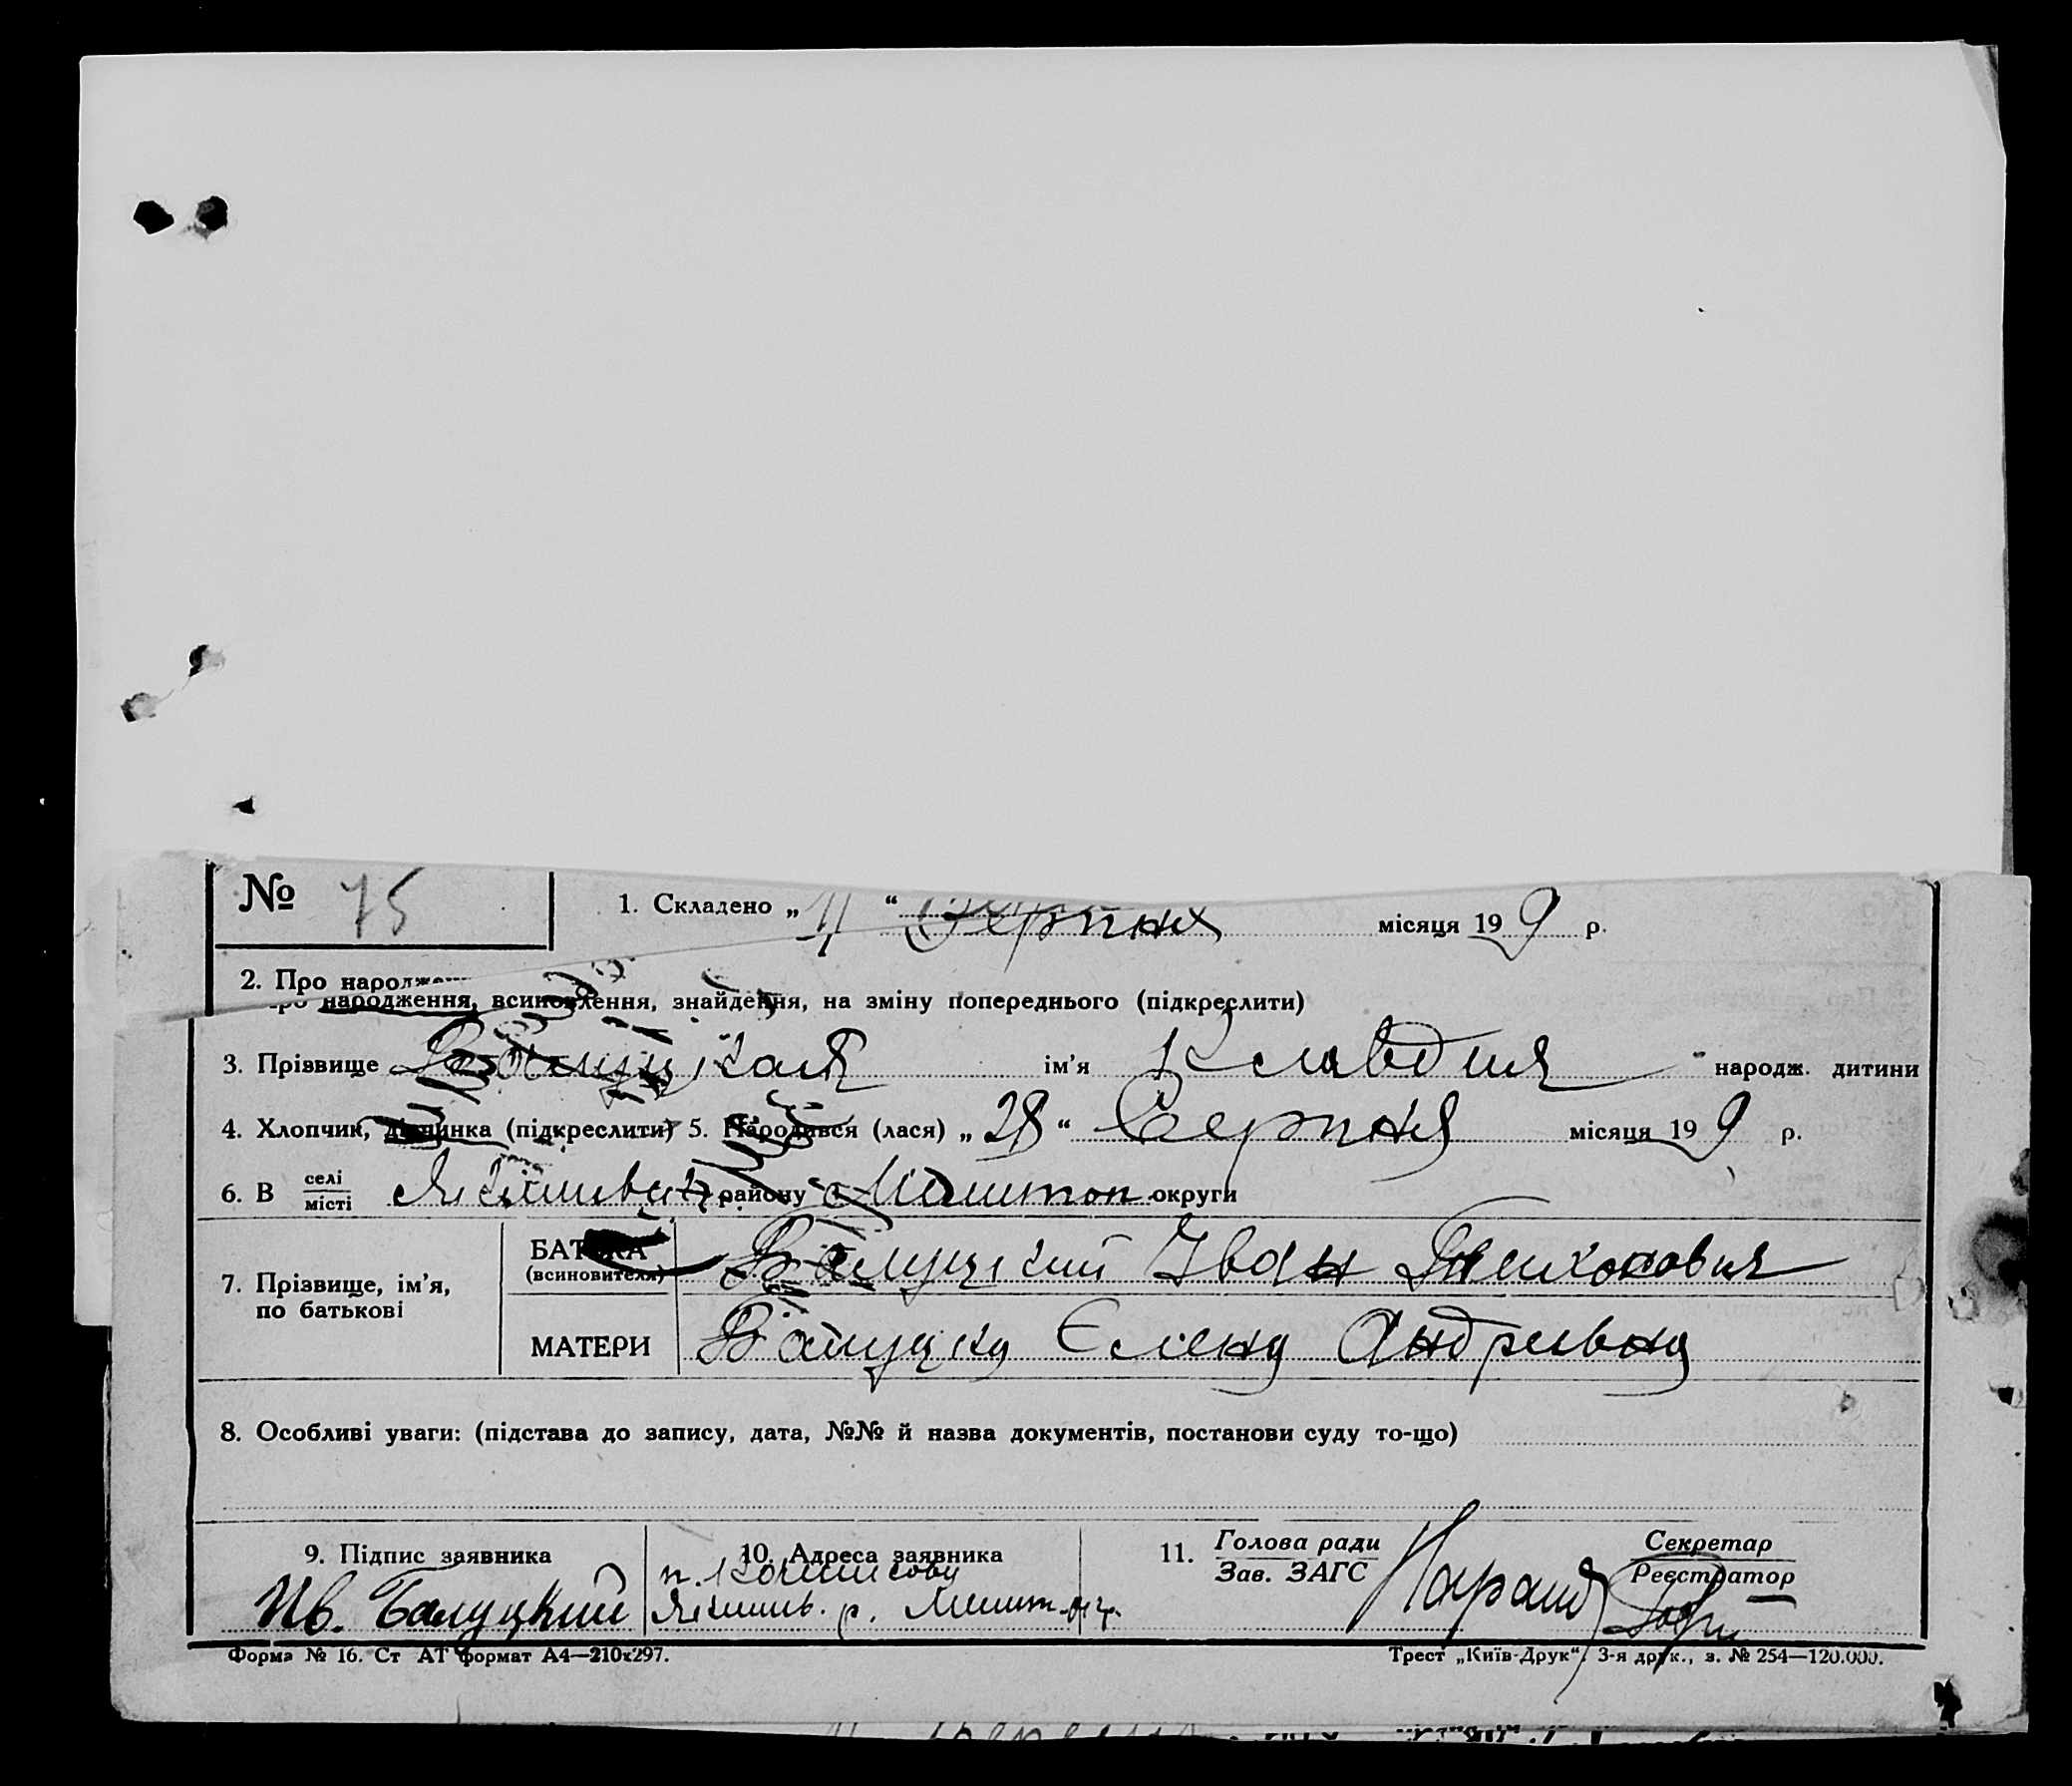 № 75
1. Складено „ 11 “ Серпня місяця 19 9 р.
2. Про народження, всиновлення, знайдення, на зміну попереднього (підкреслити)
3. Прізвище Балуцкая ім'я Клавдия народж. дитини
4. Хлопчик, дівчинка (підкреслити) 5. Народився (лася) „ 28 “ Серпня місяця 19 9 р.
6. В селі місті району Мелитоп округи
7. Прізвище, ім'я, по батькові
БАТЬКА (всиновителя) Балуцкий Іван Тихонович
МАТЕРИ Балуцка Єлена Андреівна
8. Особливі уваги: (підстава до запису, дата, №№ й назва документів, постанови суду то-що)
9. Підпис заявника 10. Адреса заявника 11. Голова ради Зав. ЗАГС Секретар Реєстратор
Ив. Балуцкий
Форма № 16. Ст АТ формат А4—210х297. Трест „Київ-Друк“, 3-я друк., з. № 254—120.000.